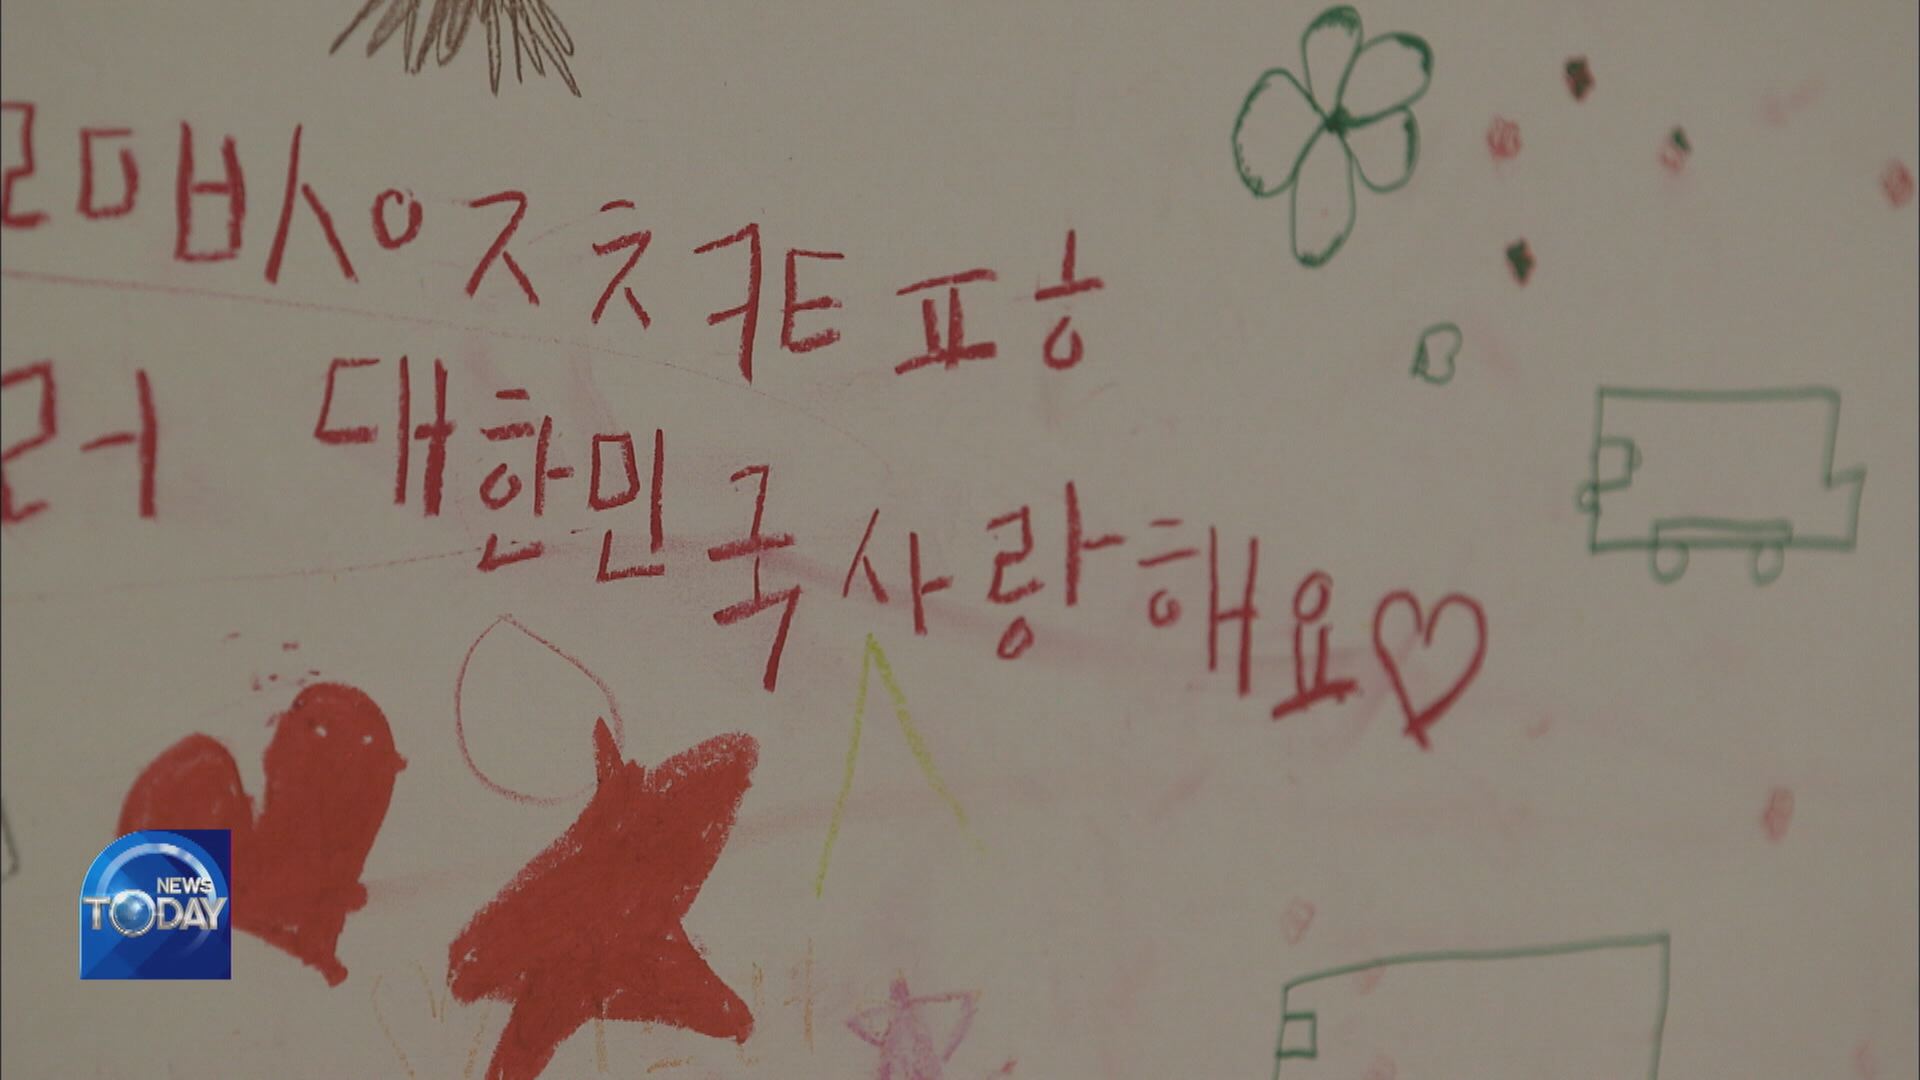 ㄹㅁㅂㅅㅇㅈㅊㅋㅌㅍㅎ
러 대한민국사랑해요♡
NEWS
TODAY